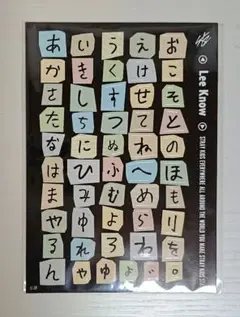 あいうえお
かきくけこ
さしすせそ
たちつてと
なにぬねの
はひふへほ
まみむめも
やゆよらり
るれろわを
んゃゅょ゛゜
Lee Know
STRAY KIDS EVERYWHERE ALL AROUND THE WORLD YOU MAKE STRAY KIDS STAY